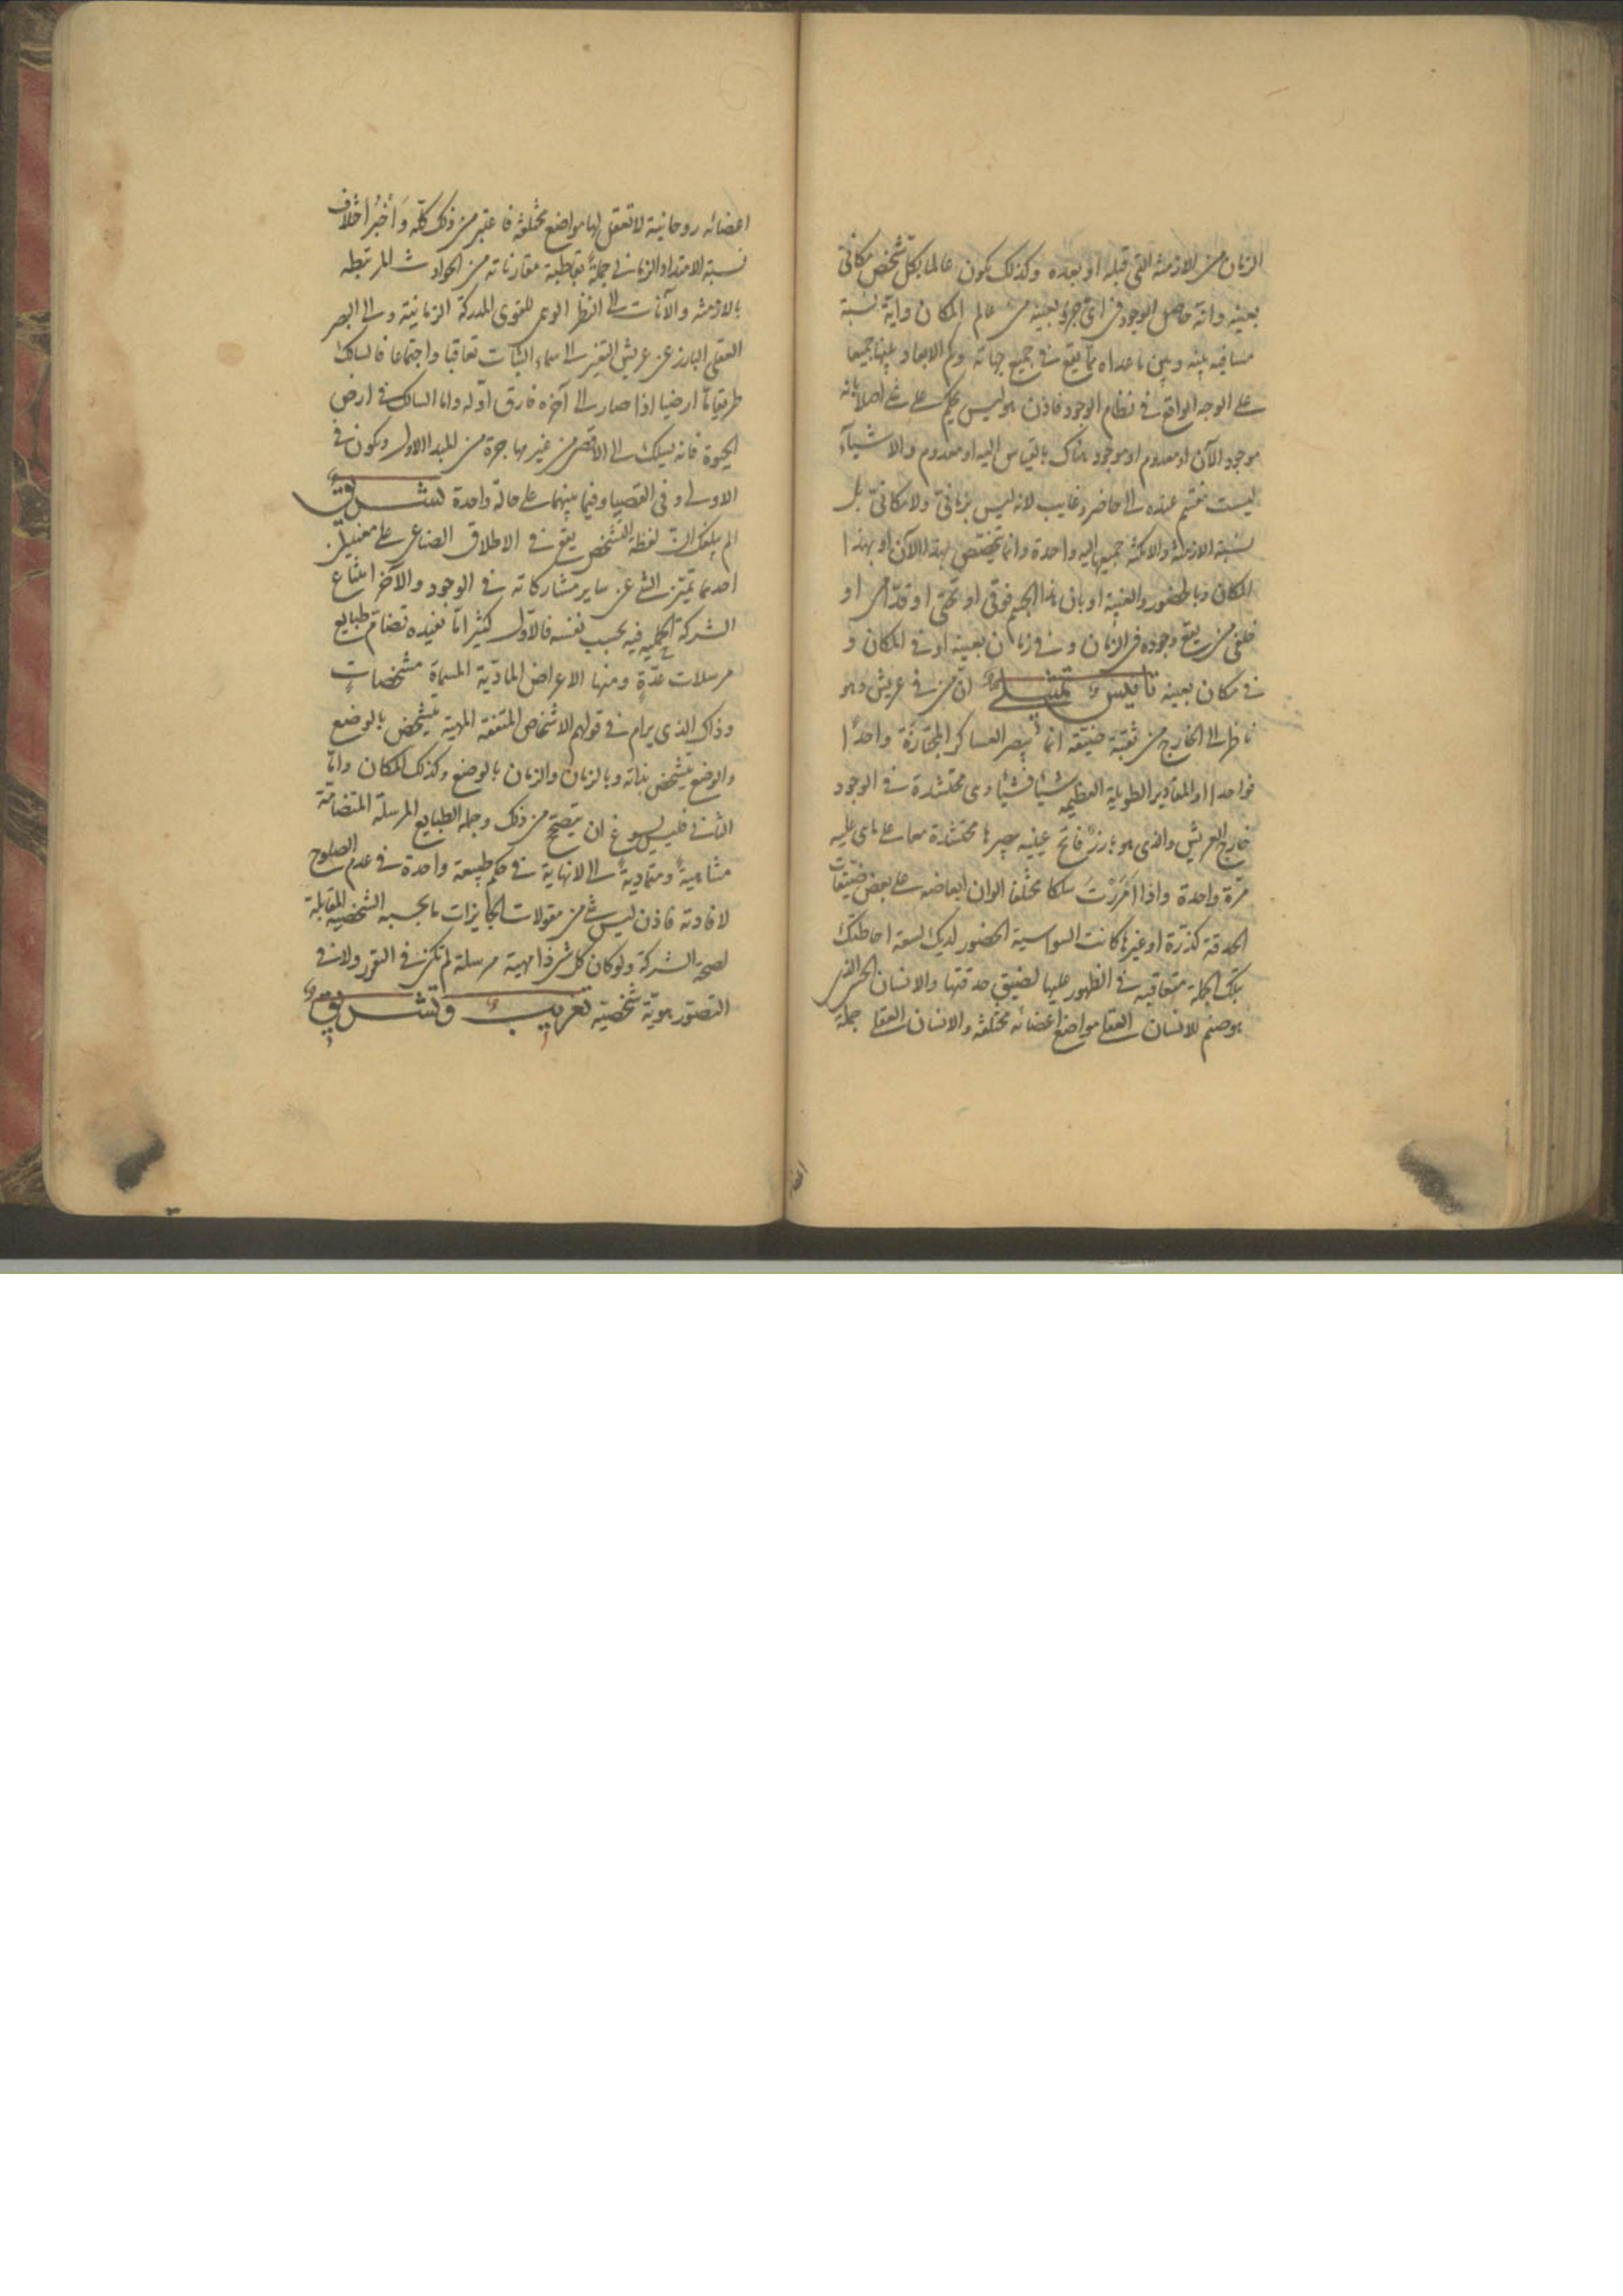 الزمان من الازمنة التى قبله او بعده وكذلك يكون عالما بكل شخص مكانى
بعينه وانه حاصل الوجود فى اى جزء بعينه من عالم المكان واية نسبة
مسافيه بينه وبين ما عداه مما يقع فى جميع جهاته وكم الابعاد بينها جميعا
على الوجه الواقع فى نظام الوجود فاذن هو ليس يحكم على شئ اصلا بانه
موجود الآن او معدوم او موجود هناك بالقياس اليه او معدوم والاشيآء
ليست تنقسم عنده الى حاضر وغايب لانه ليس بزمانى ولا مكانى بل
نسبة الازمنة والامكنة جميعها اليه واحدة وانما يختص بهذا الآن او بهذا
المكان وبالحضور والغيبة او بان هذا الجسم فوقى او تحتى او قدامى او
خلفى من يقع وجوده فى الزمان وفى زمان بعينه او فى المكان و
فى مكان بعينه تاسيس تمثيلى ان من فى عريش وهو
ناظر الى الخارج من ثقبة ضيقه انما يبصر العساكر المجتازة واحدا
فواحدا او المقادير الطويلة العظيمه شيئا فشيئا وهى محتشدة فى الوجود
خارج العريش والذى هو بارز فاتح عينيه يبصرها محتشدة معا على ما هى عليه
مرة واحدة واذا امررت سلكا مختلفا الوان ابعاضه على بعض ضيقات
الحدقة كذرة او غيرها كانت السواسية الحضور لديك لسعة احاطتك
بتلك الجملة متعاقبه فى الظهور عليها لضيق حدقتها والانسان الحسى الذى
هو صنم للانسان العقلى مواضع اعضائه مختلفة والانسان العقلى جملة
اعضائه روحانية لا تعقل لها مواضع مختلفة فاعتبر من ذلك كله واخبر اختلاف
نسبة الامتداد الزمانى جملة بقاطبة مقارناته من الحوادث المرتبطه
بالازمنة والآنات الى النظر الوهمى للقوى المدركة الزمانية والى البصر
العقلى البارز عن عريش التغير الى سماء الثبات تعاقبا واجتماعا فالسالك
طريقا ما ارضيا اذا صار الى آخره فارق اوله واما السالك فى ارض
الحيوة فانه يسلك الى الاقصى من غير مهاجرة من المبدا الاول ويكون فى
الاولى وفى القصيا وفيما بينهما على حالة واحدة تشريق
الم يبلغك ان لفظة التشخص يقع فى الاطلاق الصناعى على معنيين
احدهما تميز الشئ عن ساير مشاركاته فى الوجود والآخر امتناع
الشركة الحملية فيه بحسب نفسه فالاول كثيرا ما تفيده تضام طبايع
مرسلات عدة ومنها الاعراض المادية المسماة مشخصات
وذاك الذى يرام فى قولهم الاشخاص المتفقة المهية يتشخص بالوضع
والوضع يتشخص بذاته وبالزمان والزمان بالوضع وكذلك المكان واما
الثانى فليس يسوغ ان يتصحح من ذلك وجملة الطبايع المرسلة المتضامة
متناهية ومتمادية الى لا نهاية فى حكم طبيعة واحدة فى عدم الصلوح
لافادته فاذن ليس شئ من مقولات الجايزات ما بحسبه الشخصية المقابلة
لصحة الشركة ولو كان كل شئ ذا مهية مرسلة لم تكن فى التقرر ولا فى
التصور هوية شخصية تغريب وتشريق